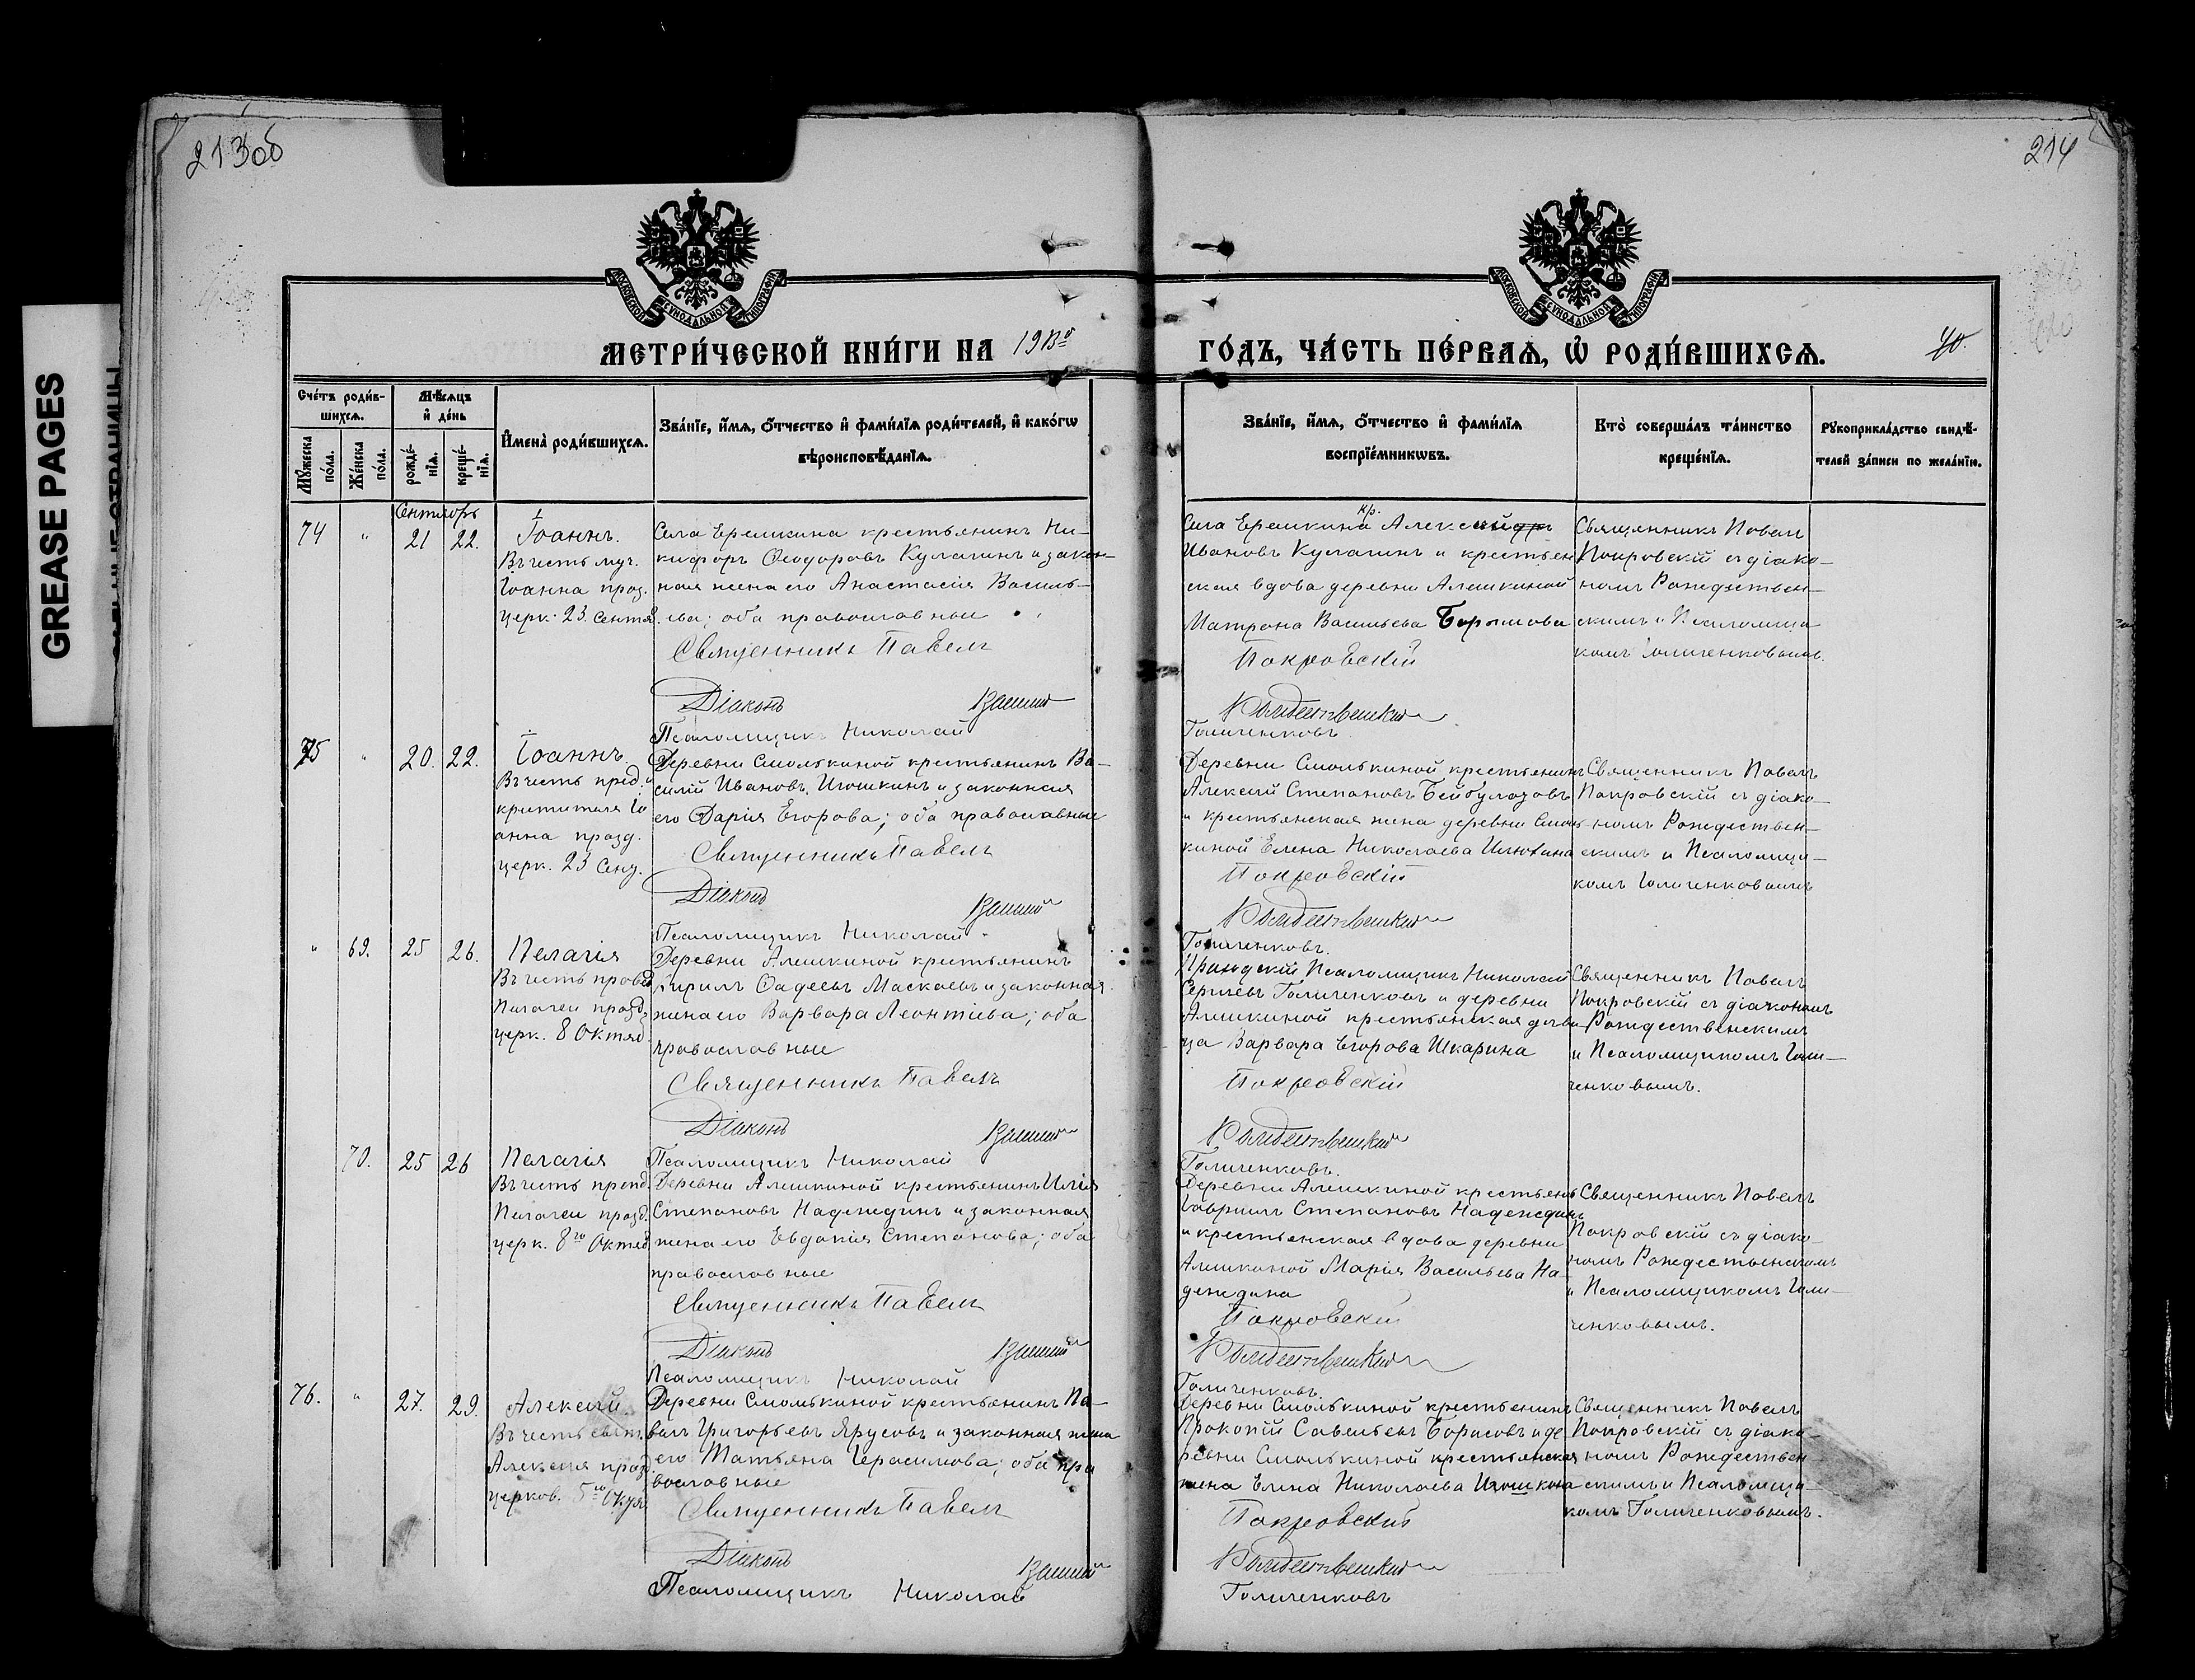 213об
214
GREASE PAGES
МЕТРИ́ЧЕСКОЙ КНИ́ГИ НА 1913й
ГО́ДЪ, ЧА́СТЬ ПЕ́РВАѦ, Ѡ҆ РОДИ́ВШИХСѦ.
40.
Сче́тъ роди́в-
шихсѧ.
Мѣ́сѧцъ
и҆ де́нь
Мꙋ́жеска
по́ла.
Же́нска
по́ла.
рожде́-
нїѧ.
креще́-
нїѧ.
И҆мена̀ роди́вшихсѧ.
Зва́нїе, и҆́мѧ, ѻ҆́тчество и҆ фами́лїѧ роди́телей, и҆ како́гѡ
вѣроисповѣ́данїѧ.
Зва́нїе, и҆́мѧ, ѻ҆́тчество и҆ фами́лїѧ
воспрїе́мникѡвъ.
Кто̀ соверша́лъ та́инство
креще́нїѧ.
Рꙋкоприкла́дство свидѣ́-
телей за́писи по жела́нїю.
Сентябрь
74 " 21 22.
Іоаннъ.
Въ честь муч.
Іоанна праз.
церк. 23 Сентя.
Села Еремкина крестьянинъ Ни-
кифоръ Ѳеодоровъ Кулагинъ и закон-
ная жена его Анастасія Василь-
ева; оба православные
Священникъ Павелъ
Діаконъ
Псаломщикъ Николай
Села Еремкина кр. Алексей
Ивановъ Кулагинъ и крестьян
ская вдова деревни Алешкиной
Матрона Васильева
Покровскій
Рождественскій
Голиченковъ.
Священникъ Павелъ
Покровскій съ діако-
номъ Рождествен-
скимъ и Псаломщи
комъ Голиченковымъ.
75 " 20. 22.
Іоаннъ.
Въ честь пред. и
крестителя Іо
анна празд.
церк. 23 Сент.
Деревни Смолькиной крестьянинъ Ва-
силій Ивановъ Игошкинъ и законная
его Дарія Егорова; оба православные
Священникъ Павелъ
Діаконъ
Псаломщикъ Николай
Деревни Смолькиной крестьянинъ
Алексій Степановъ Бейбулатовъ
и крестьянская жена деревни Смоль
киной Елена Николаева
Покровскій
Рождественскій
Голиченковъ.
Священникъ Павелъ
Покровскій съ діако-
номъ Рождествен-
скимъ и Псаломщи-
комъ Голиченковымъ
" 69. 25 26.
Пелагія
Въ честь
Пелагеи празд.
церк. 8 Октяб.
Деревни Алешкиной крестьянинъ
Кирилъ Фадеевъ Маскаевъ и законная
жена его Варвара Леонтіева; оба
православные
Священникъ Павелъ
Діаконъ
Псаломщикъ Николай
Приходскій Псаломщикъ Николай
Сергіевъ Голиченковъ и деревни
Алешкиной крестьянская деви
ца Варвара Егорова Шкарина
Покровскій
Рождественскій
Голиченковъ.
Священникъ Павелъ
Покровскій съ діакономъ
Рождественскимъ
и Псаломщикомъ Голи-
ченковымъ.
70. 25 26
Пелагія
Въ честь преп.
Пелагеи празд.
церк. 8го Октяб.
Деревни Алешкиной крестьянинъ Илія
Степановъ Надеждинъ и законная
жена его Евдокія Степанова; оба
православные
Священникъ Павелъ
Діаконъ
Псаломщикъ Николай
Деревни Алешкиной крестьянъ
Гавриилъ Степановъ Надеждинъ
и крестьянская вдова деревни
Алешкиной Марія Васильева На-
деждина
Покровскій
Рождественскій
Голиченковъ.
Священникъ Павелъ
Покровскій съ діако-
номъ Рождественскимъ
и Псаломщикомъ Голи-
ченковымъ.
76. " 27. 29.
Алексій.
Въ честь свят.
Алексія празд.
церков. 5го Октя.
Деревни Смолькиной крестьянинъ Па-
велъ Григорьевъ Ярусовъ и законная жена
его Татьяна Герасимова; оба пра
вославные
Священникъ Павелъ
Діаконъ
Псаломщикъ Николай
Деревни Смолькиной крестьянинъ
Прокопій Савельевъ Борисовъ и де
ревни Смолькиной крестьянская
жена Елена Николаева Игошкина
Покровскій
Рождественскій
Голиченковъ
Священникъ Павелъ
Покровскій съ діако-
номъ Рождествен-
скимъ и Псаломщи-
комъ Голиченковымъ.